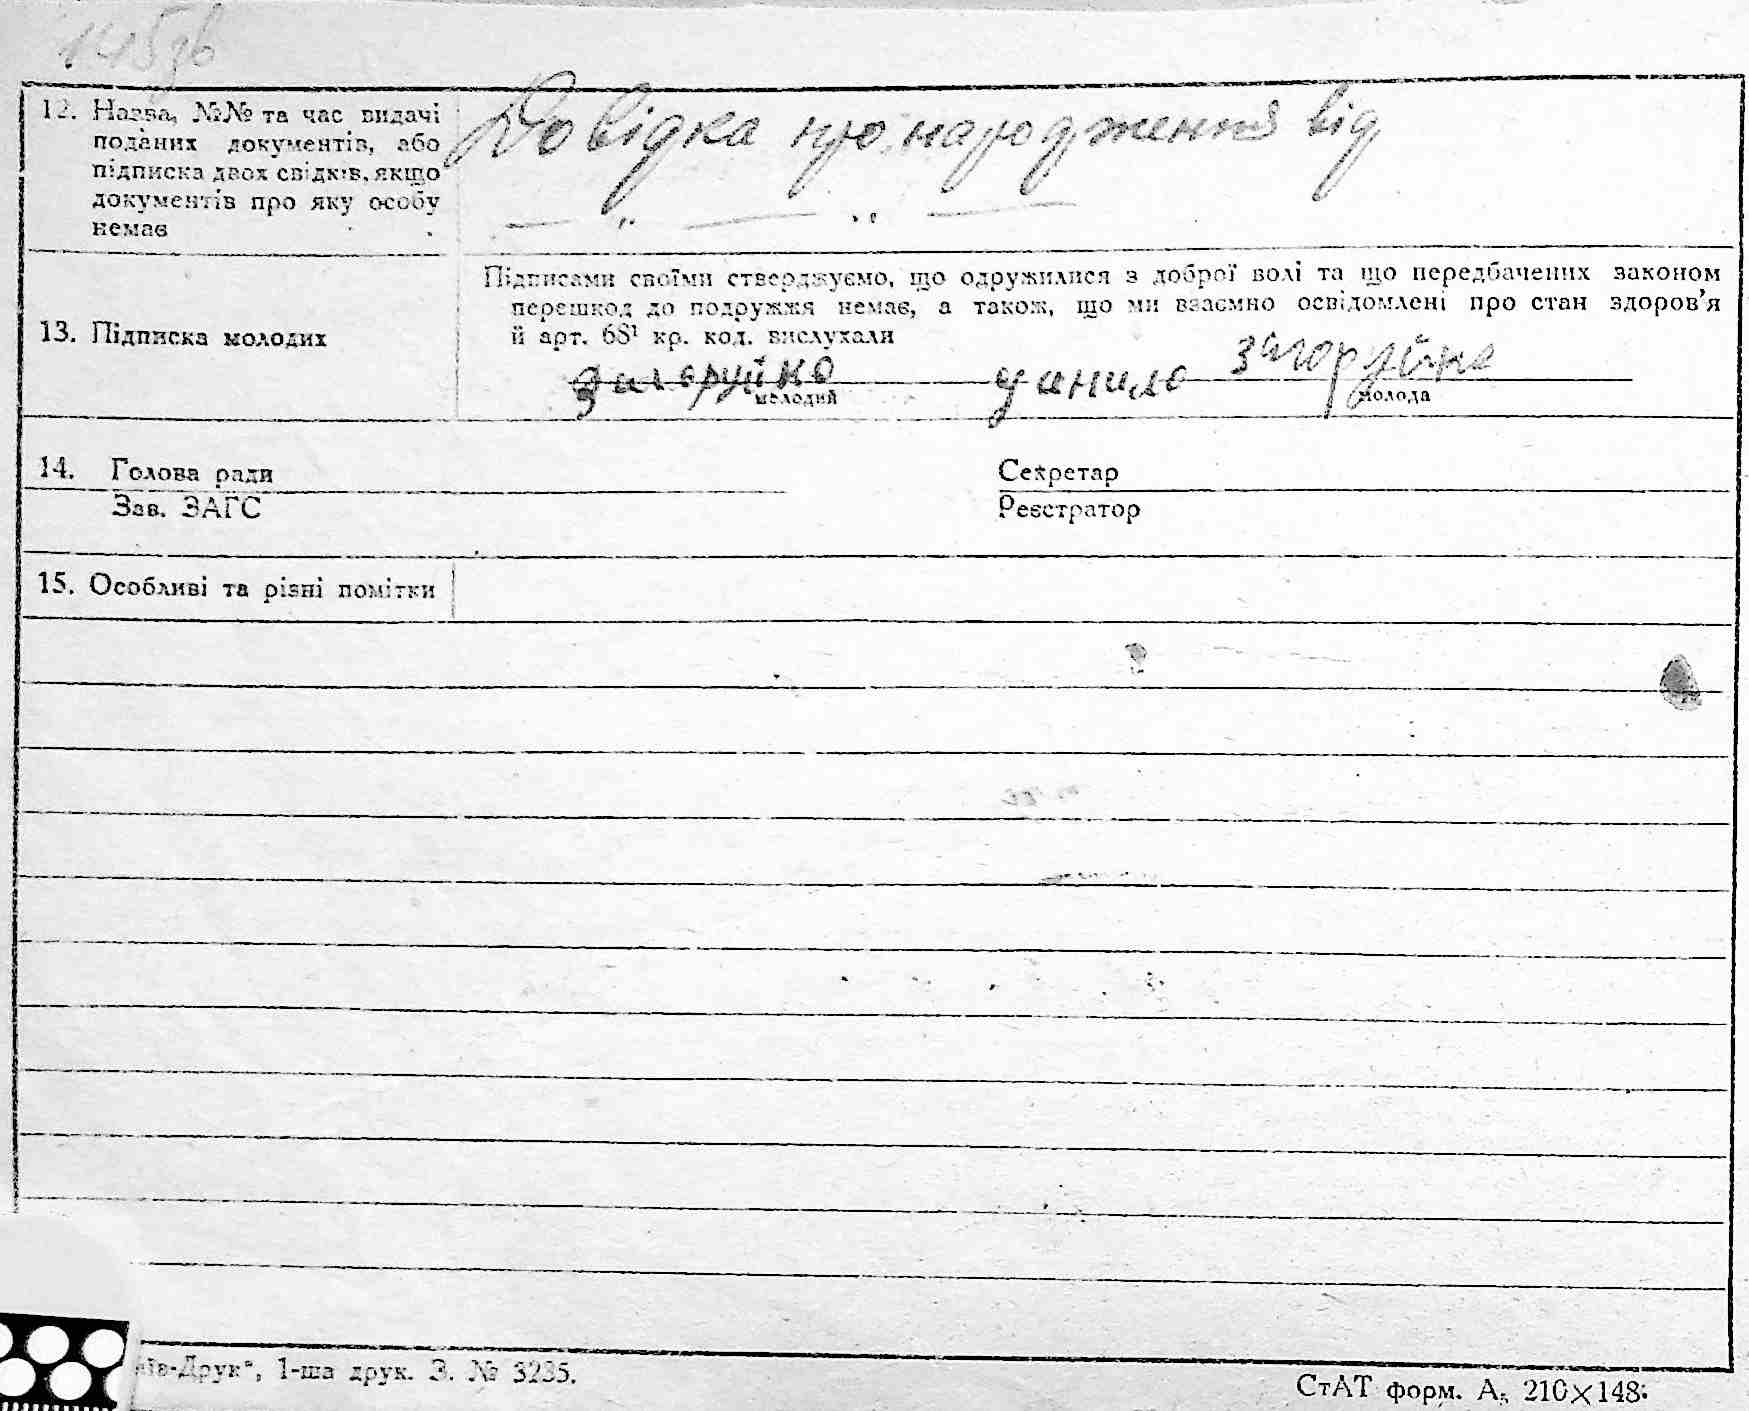 145зв
12. Назва, №№ та час видачі
поданих документів, або
підписка двох свідків, якщо
документів про яку особу
немає
Довідка про народження від
— „ — „ —
13. Підписка молодих
Підписами своїми стверджуємо, що одружилися з доброї волі та що передбачених законом
перешкод до подружжя немає, а також, що ми взаємно освідомлені про стан здоров'я
й арт. 68¹ кр. код. вислухали
Загоруйко Данило Загоруйко
молодий молода
14. Голова ради Секретар
Зав. ЗАГС Реєстратор
15. Особливі та різні помітки
-Друк“, 1-ша друк. З. № 3235.
СтАТ форм. А₅ 210×148